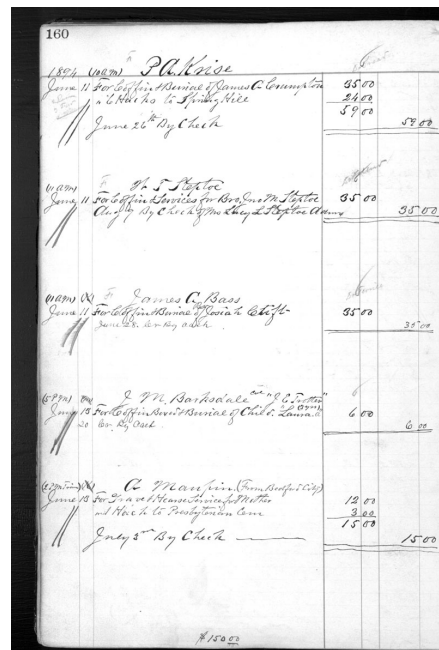 160
1894 (10 am) P A Krise
June 11 For Coffin & Burial of James C. Crumpton 35 00
" 6 Hacks to Spring Hill 24 00
59 00
June 26th By Check 59 00
(11 am) 
June 11 For Coffin & Services for Bro. Jno M. Steptoe 35 00
Aug 9 By Check of Mrs Lucy L Steptoe 35 00
(11 am) James C. Bass
June 11 For Coffin & Burial of Josiah Clift 35 00
June 28. Cr. By Cash. 35 00
(5 Pm) J. M. Barksdale "J C Trotter"
June 13 For Coffin Box & Burial of Child. Laura 6 00
20 Cr. By Cash 6 00
Maupin (From Bedford City)
June 13 For Grave & Hearse Services for Mother 12 00
and Hack to Presbyterian Cem 3 00
15 00
July 3rd By Check 15 00
$150 00